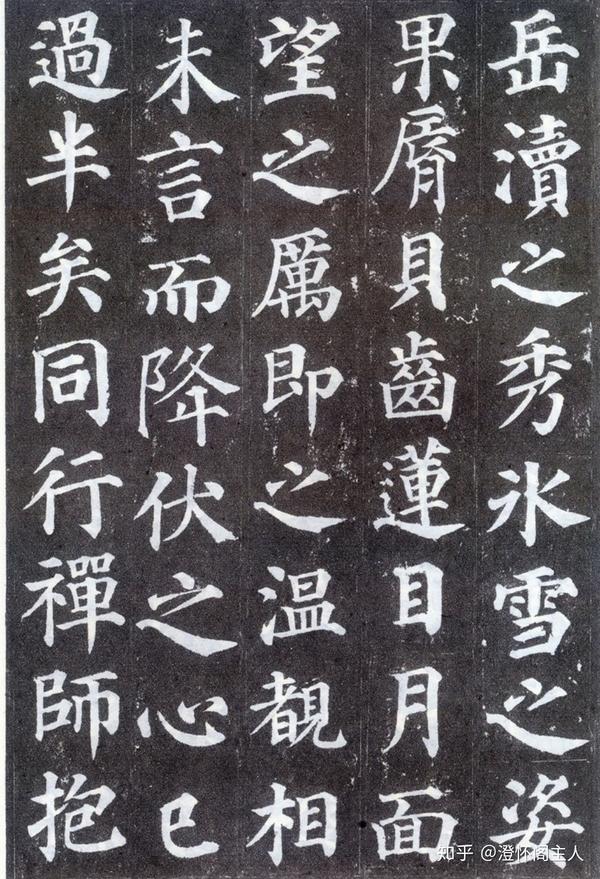 岳瀆之秀氷雪之姿
果脣貝齒蓮目月面
望之厲即之温覩相
未言而降伏之心已
過半矣同行禪師抱
知乎 @澄怀阁主人